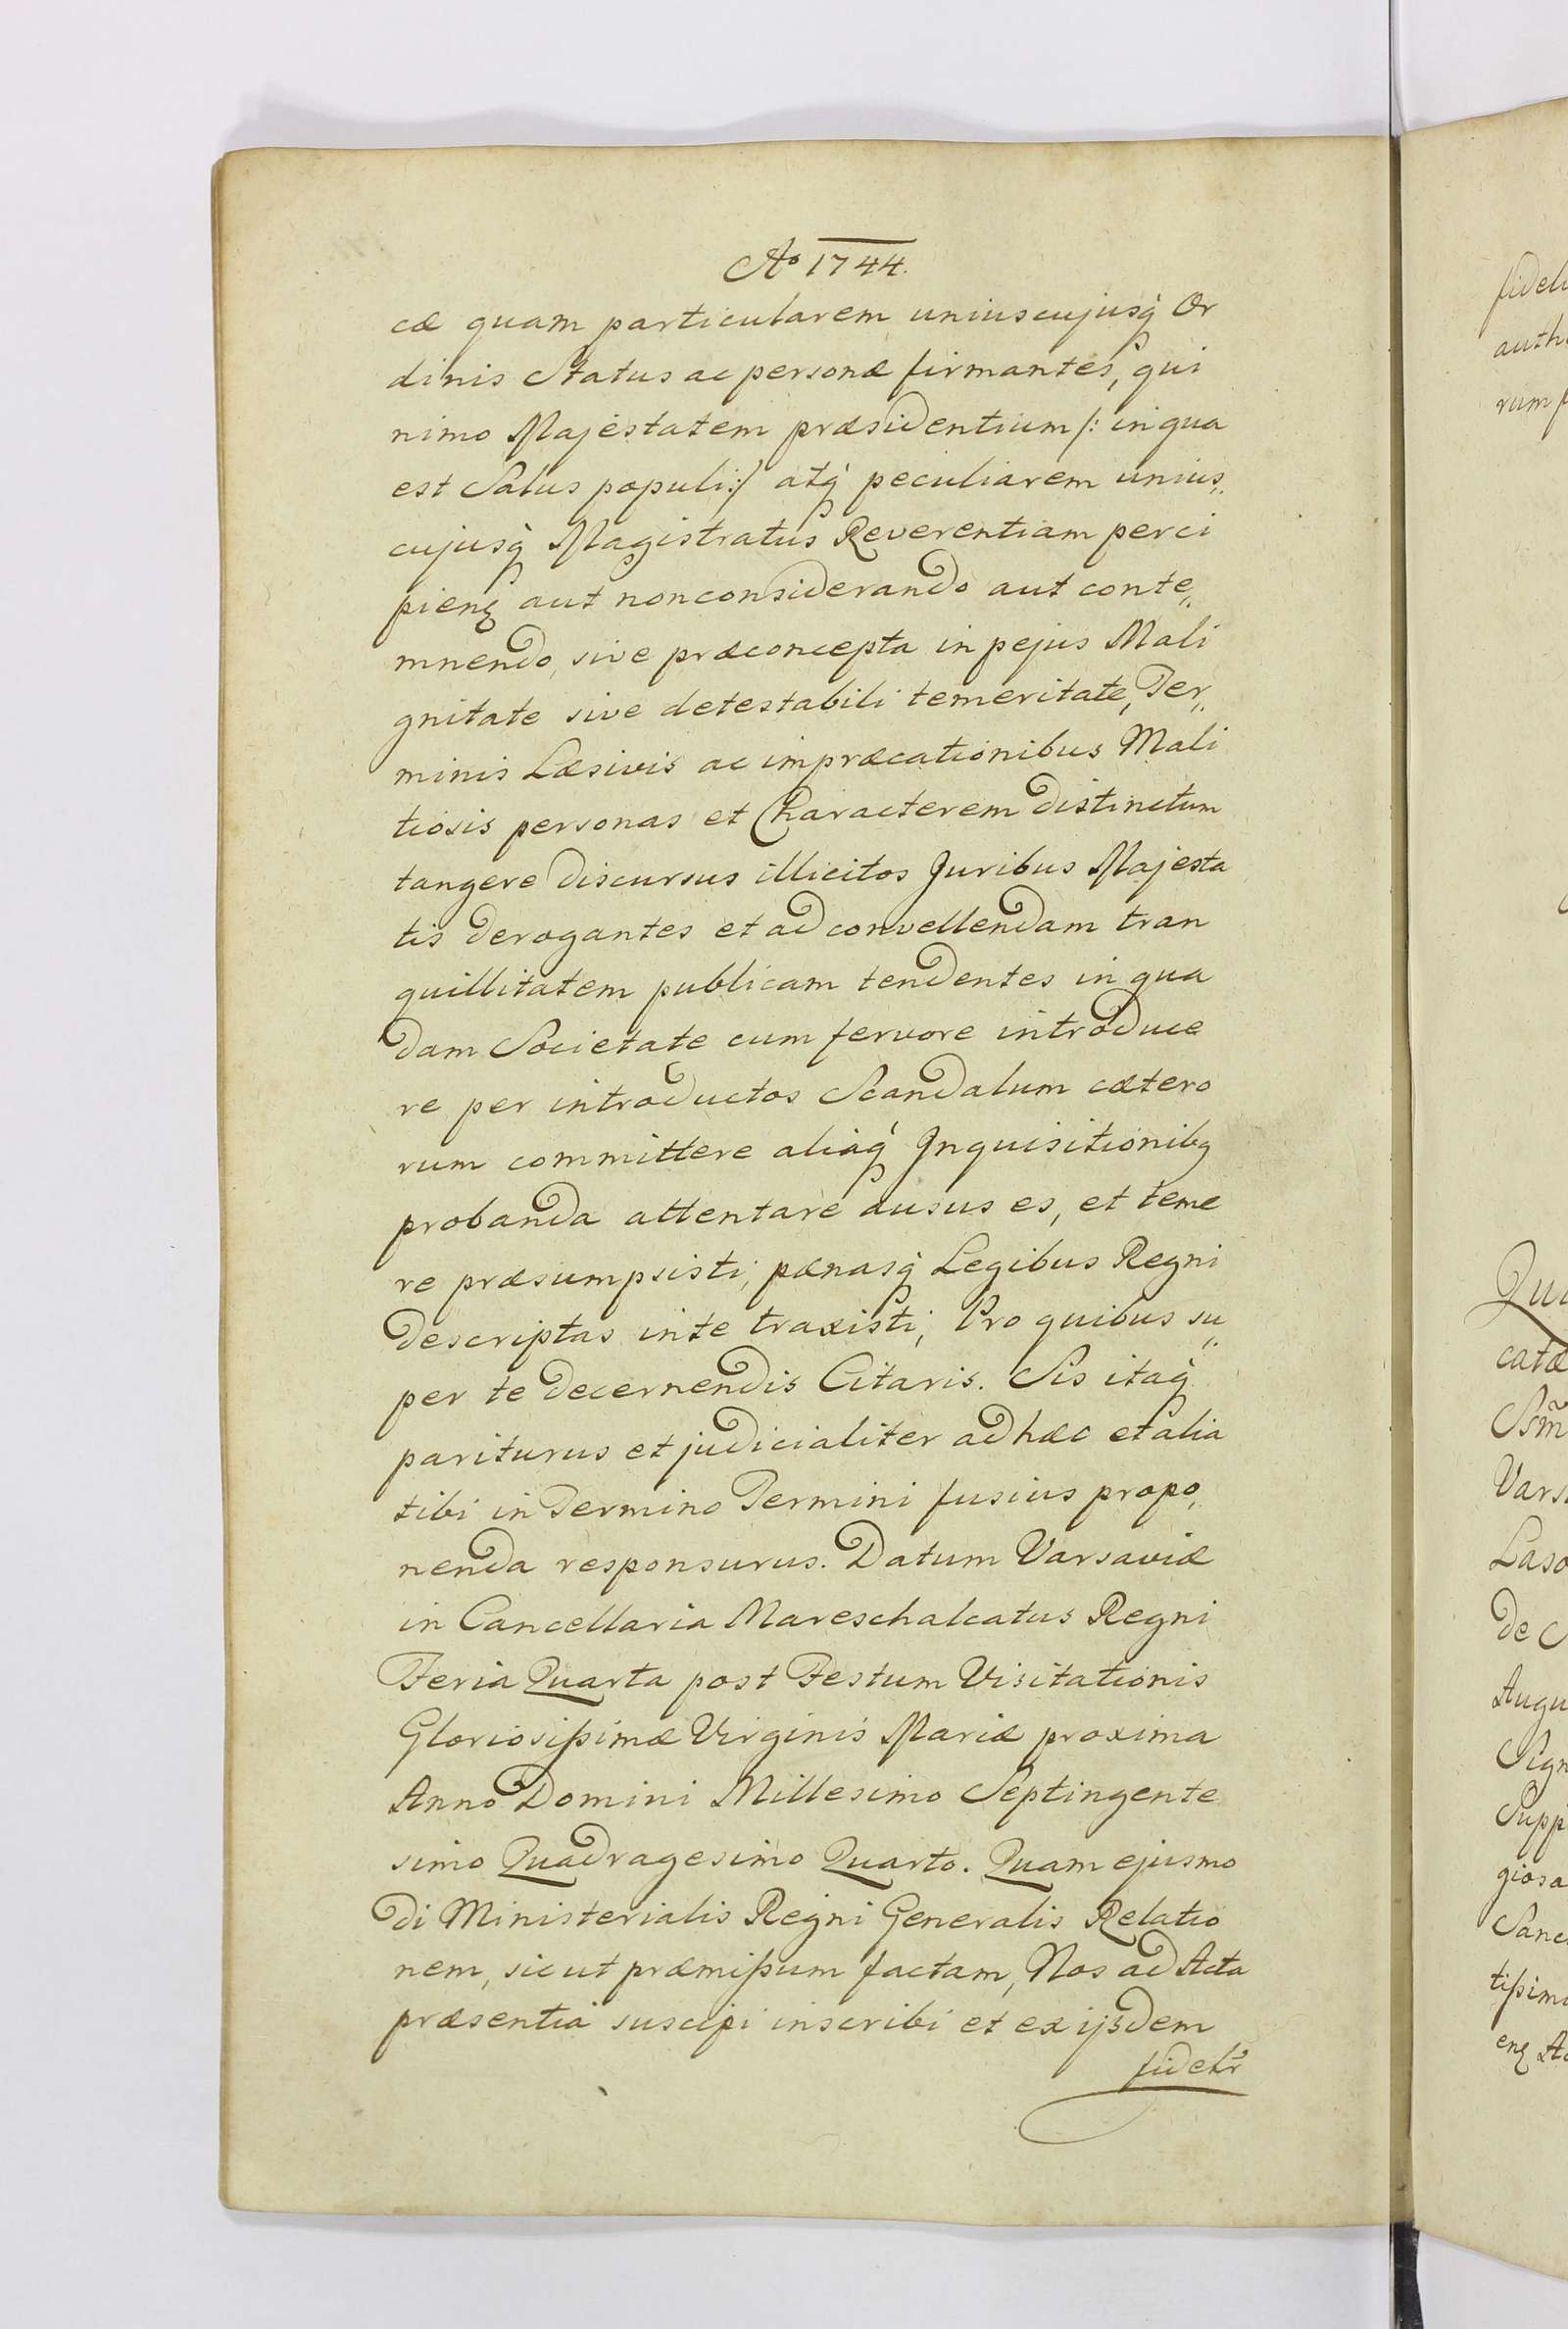 Ao 1744.
cæ quam particularem uniuscujusq́ Or
dinis Status ac personæ firmantes, qui
nimo Majestatem præsidentium /: in qua
est Salus populi :/ atq́ peculiarem unius„
cujusq́ Magistratus Reverentiam perci
pienę aut non considerando aut conte„
mnendo, sive præconcepta in pejus Mali
gnitate sive detestabili temeritate, Ter„
minis Læsivis ac impræcationibus Mali
tiosis personas et Characterem distinctum
tangere discursus illicitos Juribus Majesta
tis derogantes et ad convellendam tran
quillitatem publicam tendentes in qua
dam Societate cum fervore introduce
re per introductos Scandalum cætero
rum committere aliaq́ Inquisitionibq
probanda attentare ausus es, et teme
re præsumpsisti, pænasq́ Legibus Regni
descriptas in te traxisti; Pro quibus su„
per te decernendis Citaris. Sis itaq́
pariturus et judicialiter ad hæc et alia
tibi in Termino Termini fusius propo„
nenda responsurus. Datum Varsaviæ
in Cancellaria Mareschalcatus Regni
Feria Quarta post Festum Visitationis
Gloriosißimæ Virginis Mariæ proxima
Anno Domini Millesimo Septingente
simo Quadragesimo Quarto. Quam ejusmo
di Ministerialis Regni Generalis Relatio
nem, sicut præmißum factam, Nos ad Acta
præsentia suscipi inscribi et ex ijsdem
fidelr
fideli
auth
rum
Qui
catæ
Ssm̃
Vars
Laso
de
Augu
Sign
Supp
giosa
Sanc
tißim
enę